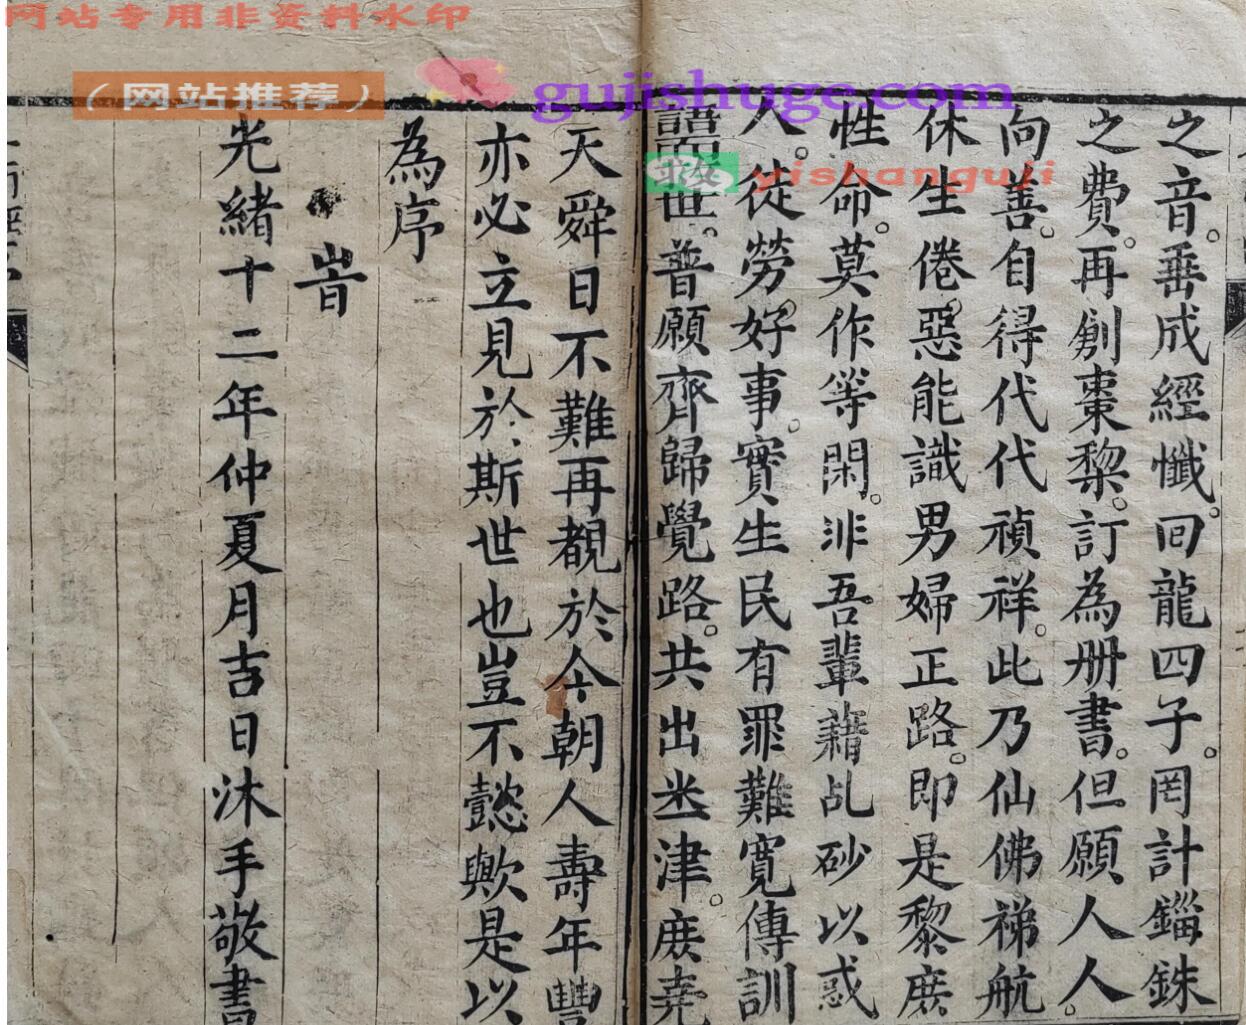 网站专用非资料水印
（网站推荐）
gujishuge.com
yishanguji
之音。垂成經懺。回龍四子。罔計錙銖
之費。再剏棗棃。訂為册書。但願人人。
向善。自得代代禎祥。此乃仙佛梯航
休生倦。惡能識男婦正路。即是黎庶
性命。莫作等閑。非吾輩藉乩砂以惑
人。徒勞。好事。實生民有罪難寬傳訓
世。普願齊歸覺路。共出迷津。庶堯
天舜日不難再覩於今朝人壽年豐
亦必立見於斯世也豈不懿歟是以
為序
旹
光緒十二年仲夏月吉日沐手敬書